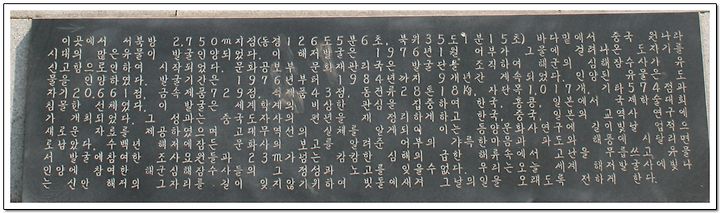 이곳에서 서북방 2,750m지점(동경 126도5분6초, 북위 35도1분15초) 바다밑에서 중국 원나라
시대의 많은 유물이 발굴되었다. 이 해저발굴은 1976년 1월 어부가 그물에 걸려나온 도자기를
신고함으로 인하여 시작되었고 문화공보부 문화재관리국은 발굴단을
물을 인양하였다. 발굴기간은 1976년부터 1984년까지 9개년간 계속되었다. 인양된 유물은 도
자기 20,661점, 금속제품 729점, 석제품 43점, 동전류 28톤 18kg, 자단목 1,017개, 기타 574점과
침몰한 선체였다. 이 발굴은 세계학계의 비상한 관심을 집중하여 한국, 홍콩, 일본에서 국제학술대회
가 개최되었다. 그 성과는 중국도자사의 편년을 재정리하고
새로운 자료를 제공하였으며 고대무역선의 실체를 알게하여 이는 동양문화사 연구에 길이빛날 업적으
로 남았다. 수백년 해저에 잠든 문화의 보고를 알려준 어부의 가륵한 마음과
서 발굴에 참여한 조사요원들과 23m가 넘는 깊은 심해의
인양에 참여한 해군심해잠수사들의 그 정성과 노고를 잊을수 없다. 우리는 오늘
는 신안 해저의 그자리를 길이 잊지않기 위하여 빗돌에 새겨 그날의 일을 오래도록 전하게 한다.